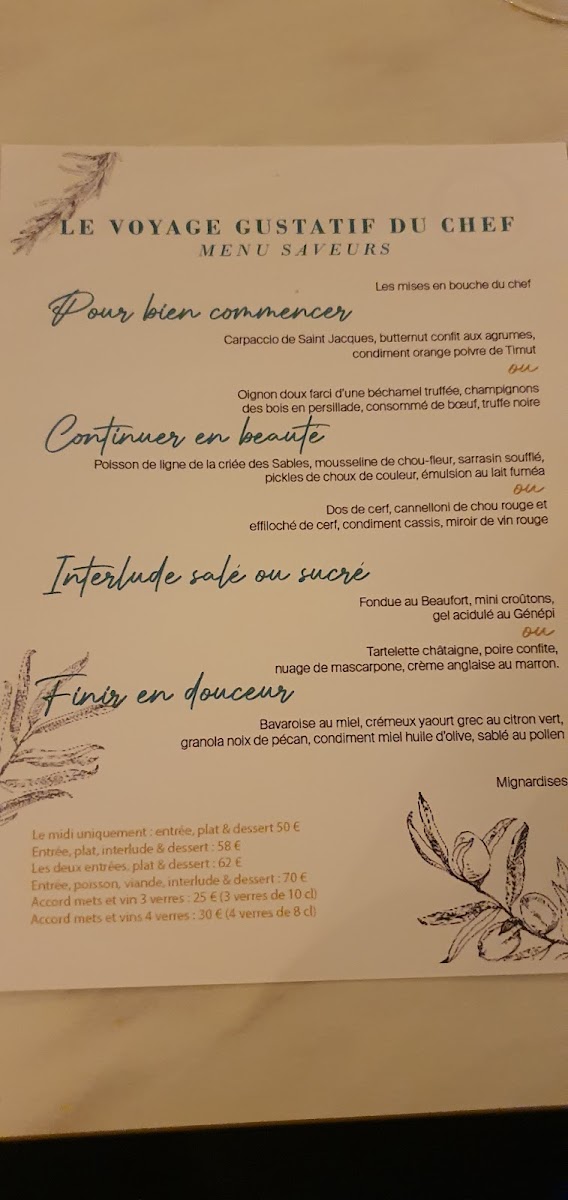 LE VOYAGE GUSTATIF DU CHEF
MENU SAVEURS
Les mises en bouche du chef
Pour bien commencer
Carpaccio de Saint Jacques, butternut confit aux agrumes,
condiment orange poivre de Timut
ou
Oignon doux farci d'une béchamel truffée, champignons
des bois en persillade, consommé de bœuf, truffe noire
Continuer en beauté
Poisson de ligne de la criée des Sables, mousseline de chou-fleur, sarrasin soufflé,
pickles de choux de couleur, émulsion au lait fuméa
ou
Dos de cerf, cannelloni de chou rouge et
effiloché de cerf, condiment cassis, miroir de vin rouge
Interlude salé ou sucré
Fondue au Beaufort, mini croûtons,
gel acidulé au Génépi
ou
Tartelette châtaigne, poire confite,
nuage de mascarpone, crème anglaise au marron.
Finir en douceur
Bavaroise au miel, crémeux yaourt grec au citron vert,
granola noix de pécan, condiment miel huile d'olive, sablé au pollen
Mignardises
Le midi uniquement : entrée, plat & dessert 50 €
Entrée, plat, interlude & dessert : 58 €
Les deux entrées, plat & dessert : 62 €
Entrée, poisson, viande, interlude & dessert : 70 €
Accord mets et vin 3 verres : 25 € (3 verres de 10 cl)
Accord mets et vins 4 verres : 30 € (4 verres de 8 cl)